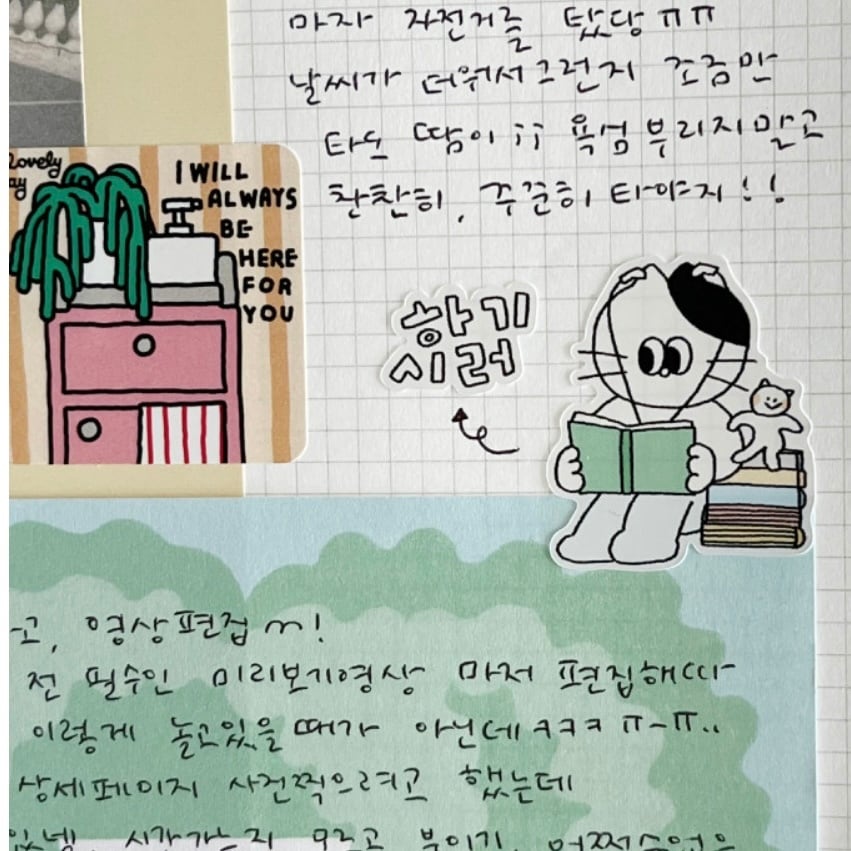 마자 자전거를 탔당ㅠㅠ
날씨가 더워서그런지 조금만
타도 땀이;; 욕심 부리지말고
찬찬히, 꾸준히 타야지!!
Lovely
ay
I WILL
ALWAYS
BE
HERE
FOR
YOU
하기
시러
고, 영상편집 m!
전 필수인 미리보기영상 마저 편집해따
이렇게 놀고있을때가 아닌데ㅋㅋㅋㅠ-ㅠ..
상세페이지 사진찍으려고 했는데
시간가는지 모르고